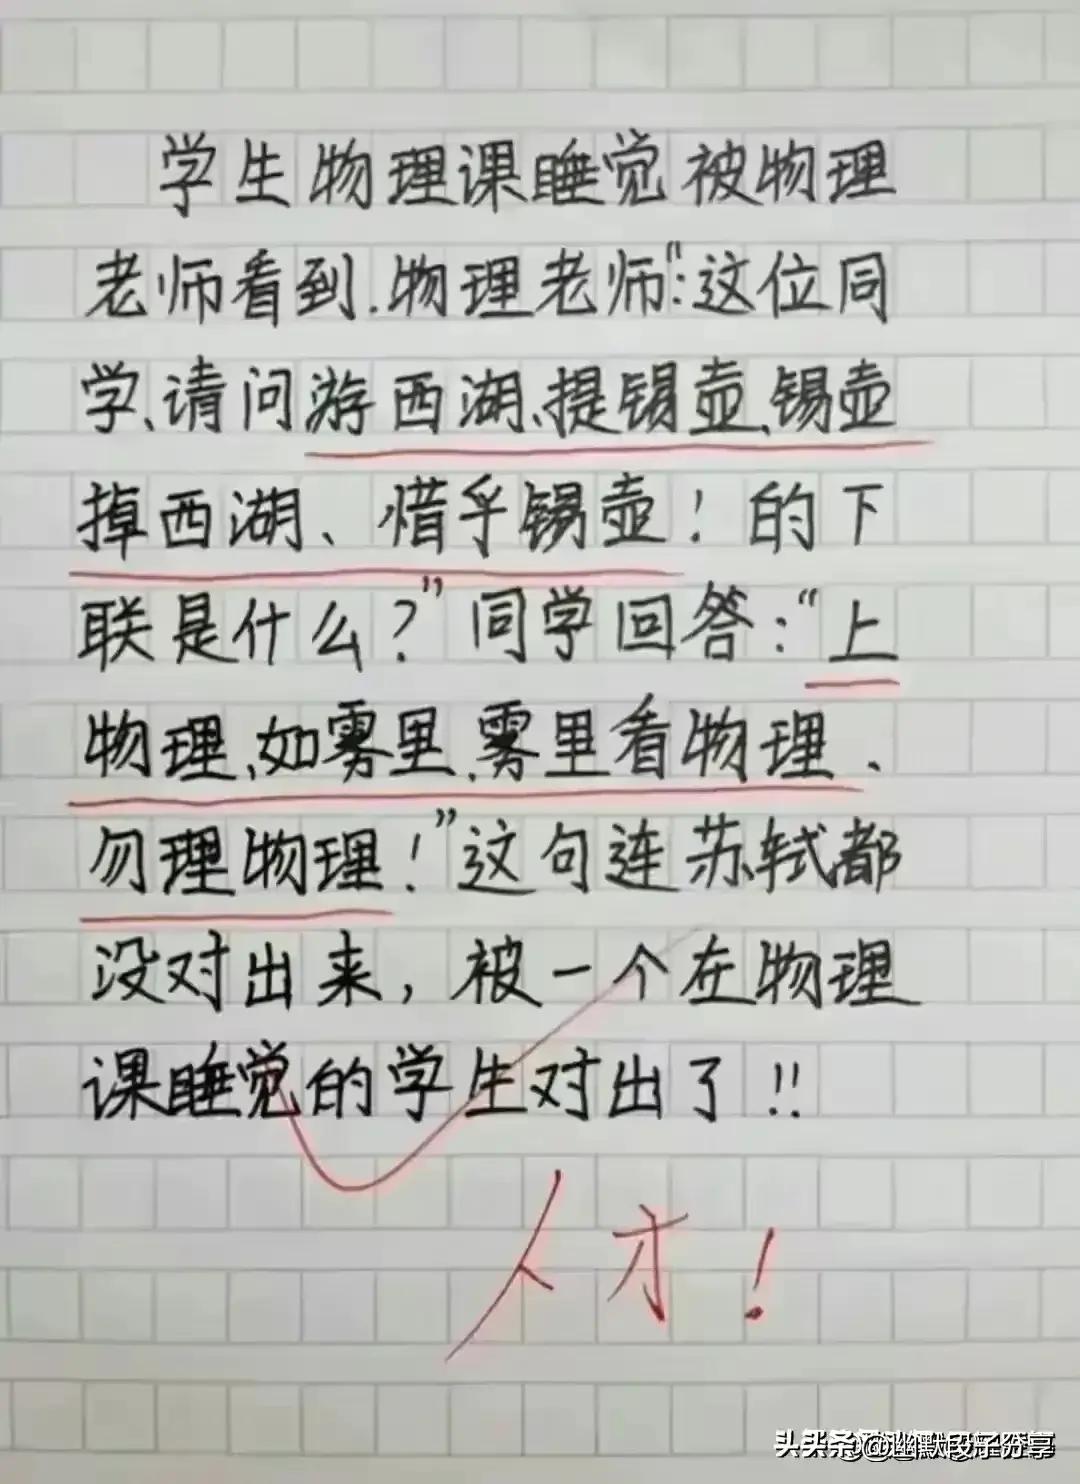 学生物理课睡觉被物理
老师看到.物理老师“:这位同
学、请问游西湖、提锡壶、锡壶
掉西湖、惜乎锡壶！的下
联是什么？”同学回答：“上
物理、如雾里、雾里看物理、
勿理物理！”这句连苏轼都
没对出来，被一个在物理
课睡觉的学生对出了!!
人才！
头条 @幽默段子分享